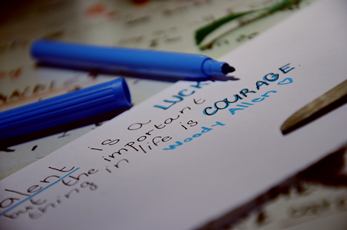 alent is a LUCK
but the important
thing in life is COURAGE.
Woody Allen